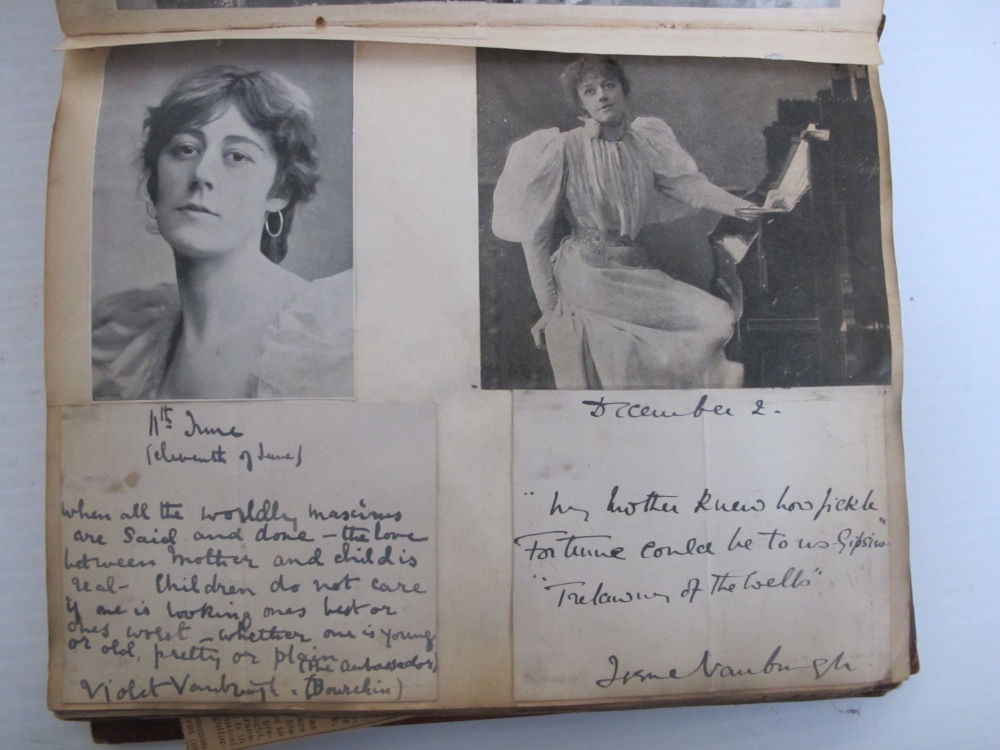 11th June
(eleventh of June)
When all the worldly maxims
are said and done - the love
between Mother and child is
real - Children do not care
if one is looking ones best or
ones worst - whether one is young
or old, pretty or plain
(The Ambassador)
Violet Vanbrugh. (Bourchier)
December 2.
"My Mother knew how fickle
Fortune could be to us Gipsies"
"Trelawny of the Wells"
Irene Vanbrugh.